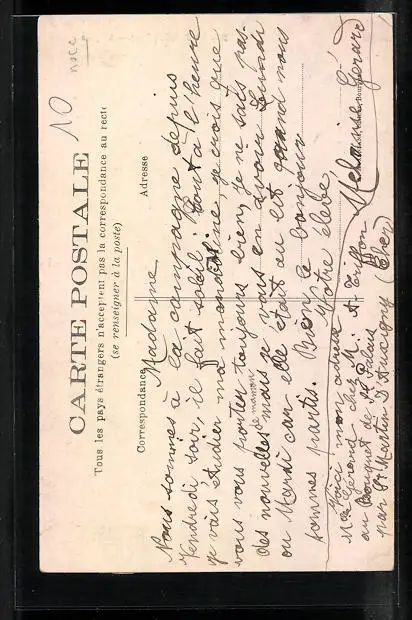 10
noce
CARTE POSTALE
Tous les pays étrangers n'acceptent pas la correspondance au recto
(se renseigner à la poste)
Correspondance
Adresse
Madame
Nous sommes à la campagne depuis
Vendredi soir, il fait soleil. Tout à l'heure
je vais étudier ma mandoline, je crois que
vous vous portez toujours bien, je ne sais pas
de maman
des nouvelles mais je vais en avoir Lundi
ou Mardi car elle était au lit quand nous
sommes partis. Bien le bonjour
Votre élève
Mélanie Gérard
Voici mon adresse
Mlle Gérard chez M. A. Triffon
au Bouquet de St Palais
par St Martin d'Auxigny (Cher)